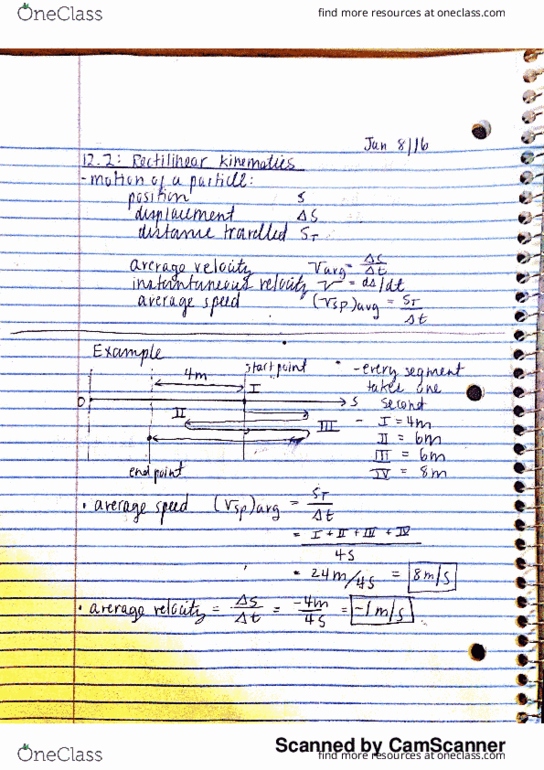 OneClass
find more resources at oneclass.com
Jan 8/16
12.2: Rectilinear kinematics
-motion of a particle:
position s
displacement Δs
distance travelled ST
average velocity Vavg = Δs/Δt
instantaneous velocity v = ds/dt
average speed (Vsp)avg = ST/Δt
Example
4m
start point
I
O
S
II
III
end point
-every segment
takes one
second
- I = 4m
II = 6m
III = 6m
IV = 8m
• average speed (Vsp)avg = ST/Δt
= I + II + III + IV / 4s
= 24m/4s = 8m/s
• average velocity = Δs/Δt = -4m/4s = -1m/s
Scanned by CamScanner
OneClass
find more resources at oneclass.com